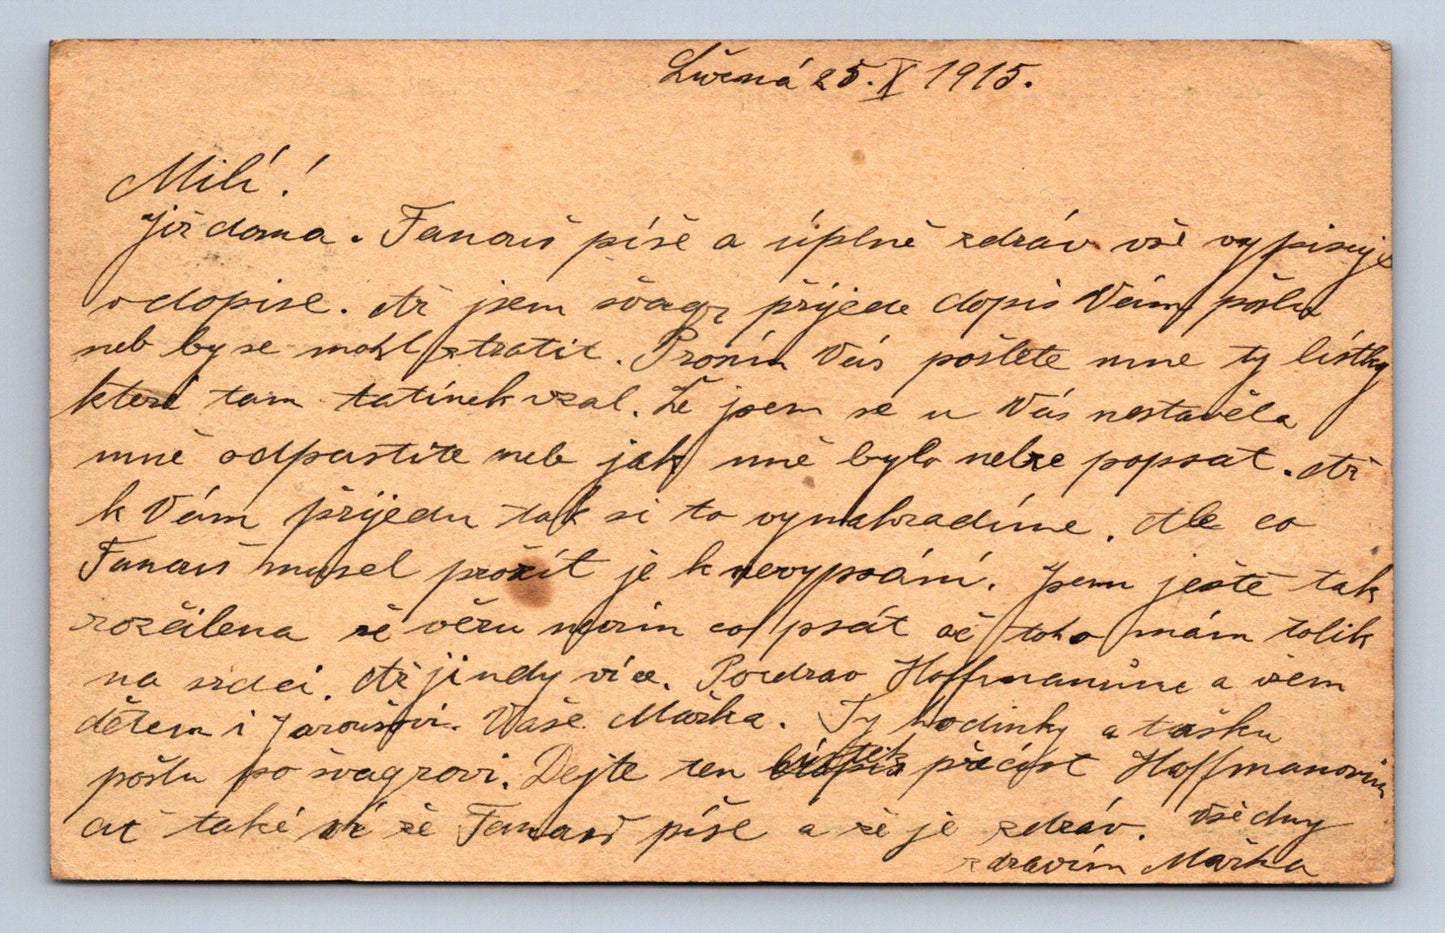 Lučená 25. X 1915.
Milí!
Již doma. Fanouš píše a úplně zdráv vše vypisuje
v dopise. Až jsem švagr přijede dopis Vám pošlu
neb by se mohl ztratit. Prosím Vás pošlete mne ty lístky
které tam tatínek vzal. Že jsem se u Vás nestavěla
mně odpustíte neb jak mně bylo nelze popsat. Až
k Vám přijedu tak si to vynahradíme. Ale co
Fanouš musel prožít je k nevypsání. Jsem ještě tak
rozčilena že věru nevím co psát ač toho mám tolik
na srdci. Až jindy více. Pozdrav Hoffmanům a všem
dětem i Jaroušovi. Vaše Mařka. Ty hodinky a tašku
pošlu po švagrovi. Dejte ten lístek přečíst Hoffmanovim
ať také ví že Fanouš píše a že je zdráv. Všechny
zdravím Mařka